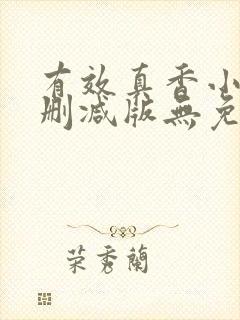 有效真香小
删减版無免
荣秀蘭